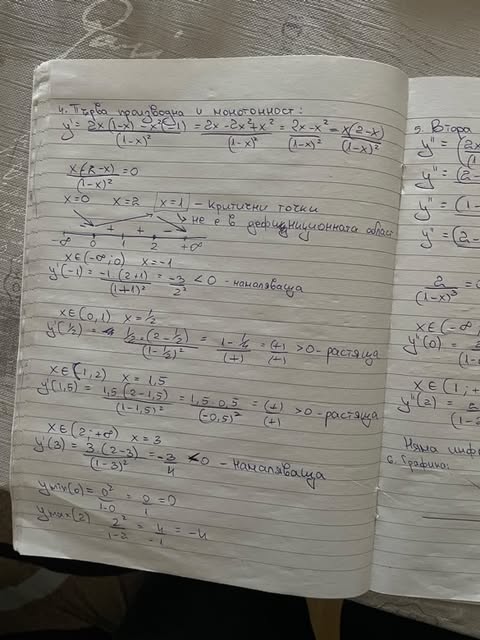 4. Първа производна и монотонност:
y' = 2x(1-x)-x²(-1)/(1-x)² = 2x-2x²+x²/(1-x)² = 2x-x²/(1-x)² = x(2-x)/(1-x)²
x(2-x)/(1-x)² = 0
x=0 x=2 x=1 - критични точки
не е в дефиниционната област
- + + -
-∞ 0 1 2 +∞
x∈(-∞;0) x=-1
y'(-1) = -1(2+1)/(1+1)² = -3/2² < 0 - намаляваща
x∈(0,1) x=1/2
y'(1/2) = 1/2·(2-1/2)/(1-1/2)² = 1-1/4/(+) = (+)/(+) > 0 - растяща
x∈(1,2) x=1,5
y'(1,5) = 1,5(2-1,5)/(1-1,5)² = 1,5·0,5/(-0,5)² = (+)/(+) > 0 - растяща
x∈(2;+∞) x=3
y'(3) = 3.(2-3)/(1-3)² = -3/4 < 0 - намаляваща
ymin(0) = 0²/1-0 = 0/1 = 0
ymax(2) 2²/1-2 = 4/-1 = -4
5. Втора
y'' =
y'' =
y'' =
y'' =
2/(1-x)³
x∈(-∞
y''(0) =
x∈(1;+
y''(2) =
Няма инфл
6. Графика: